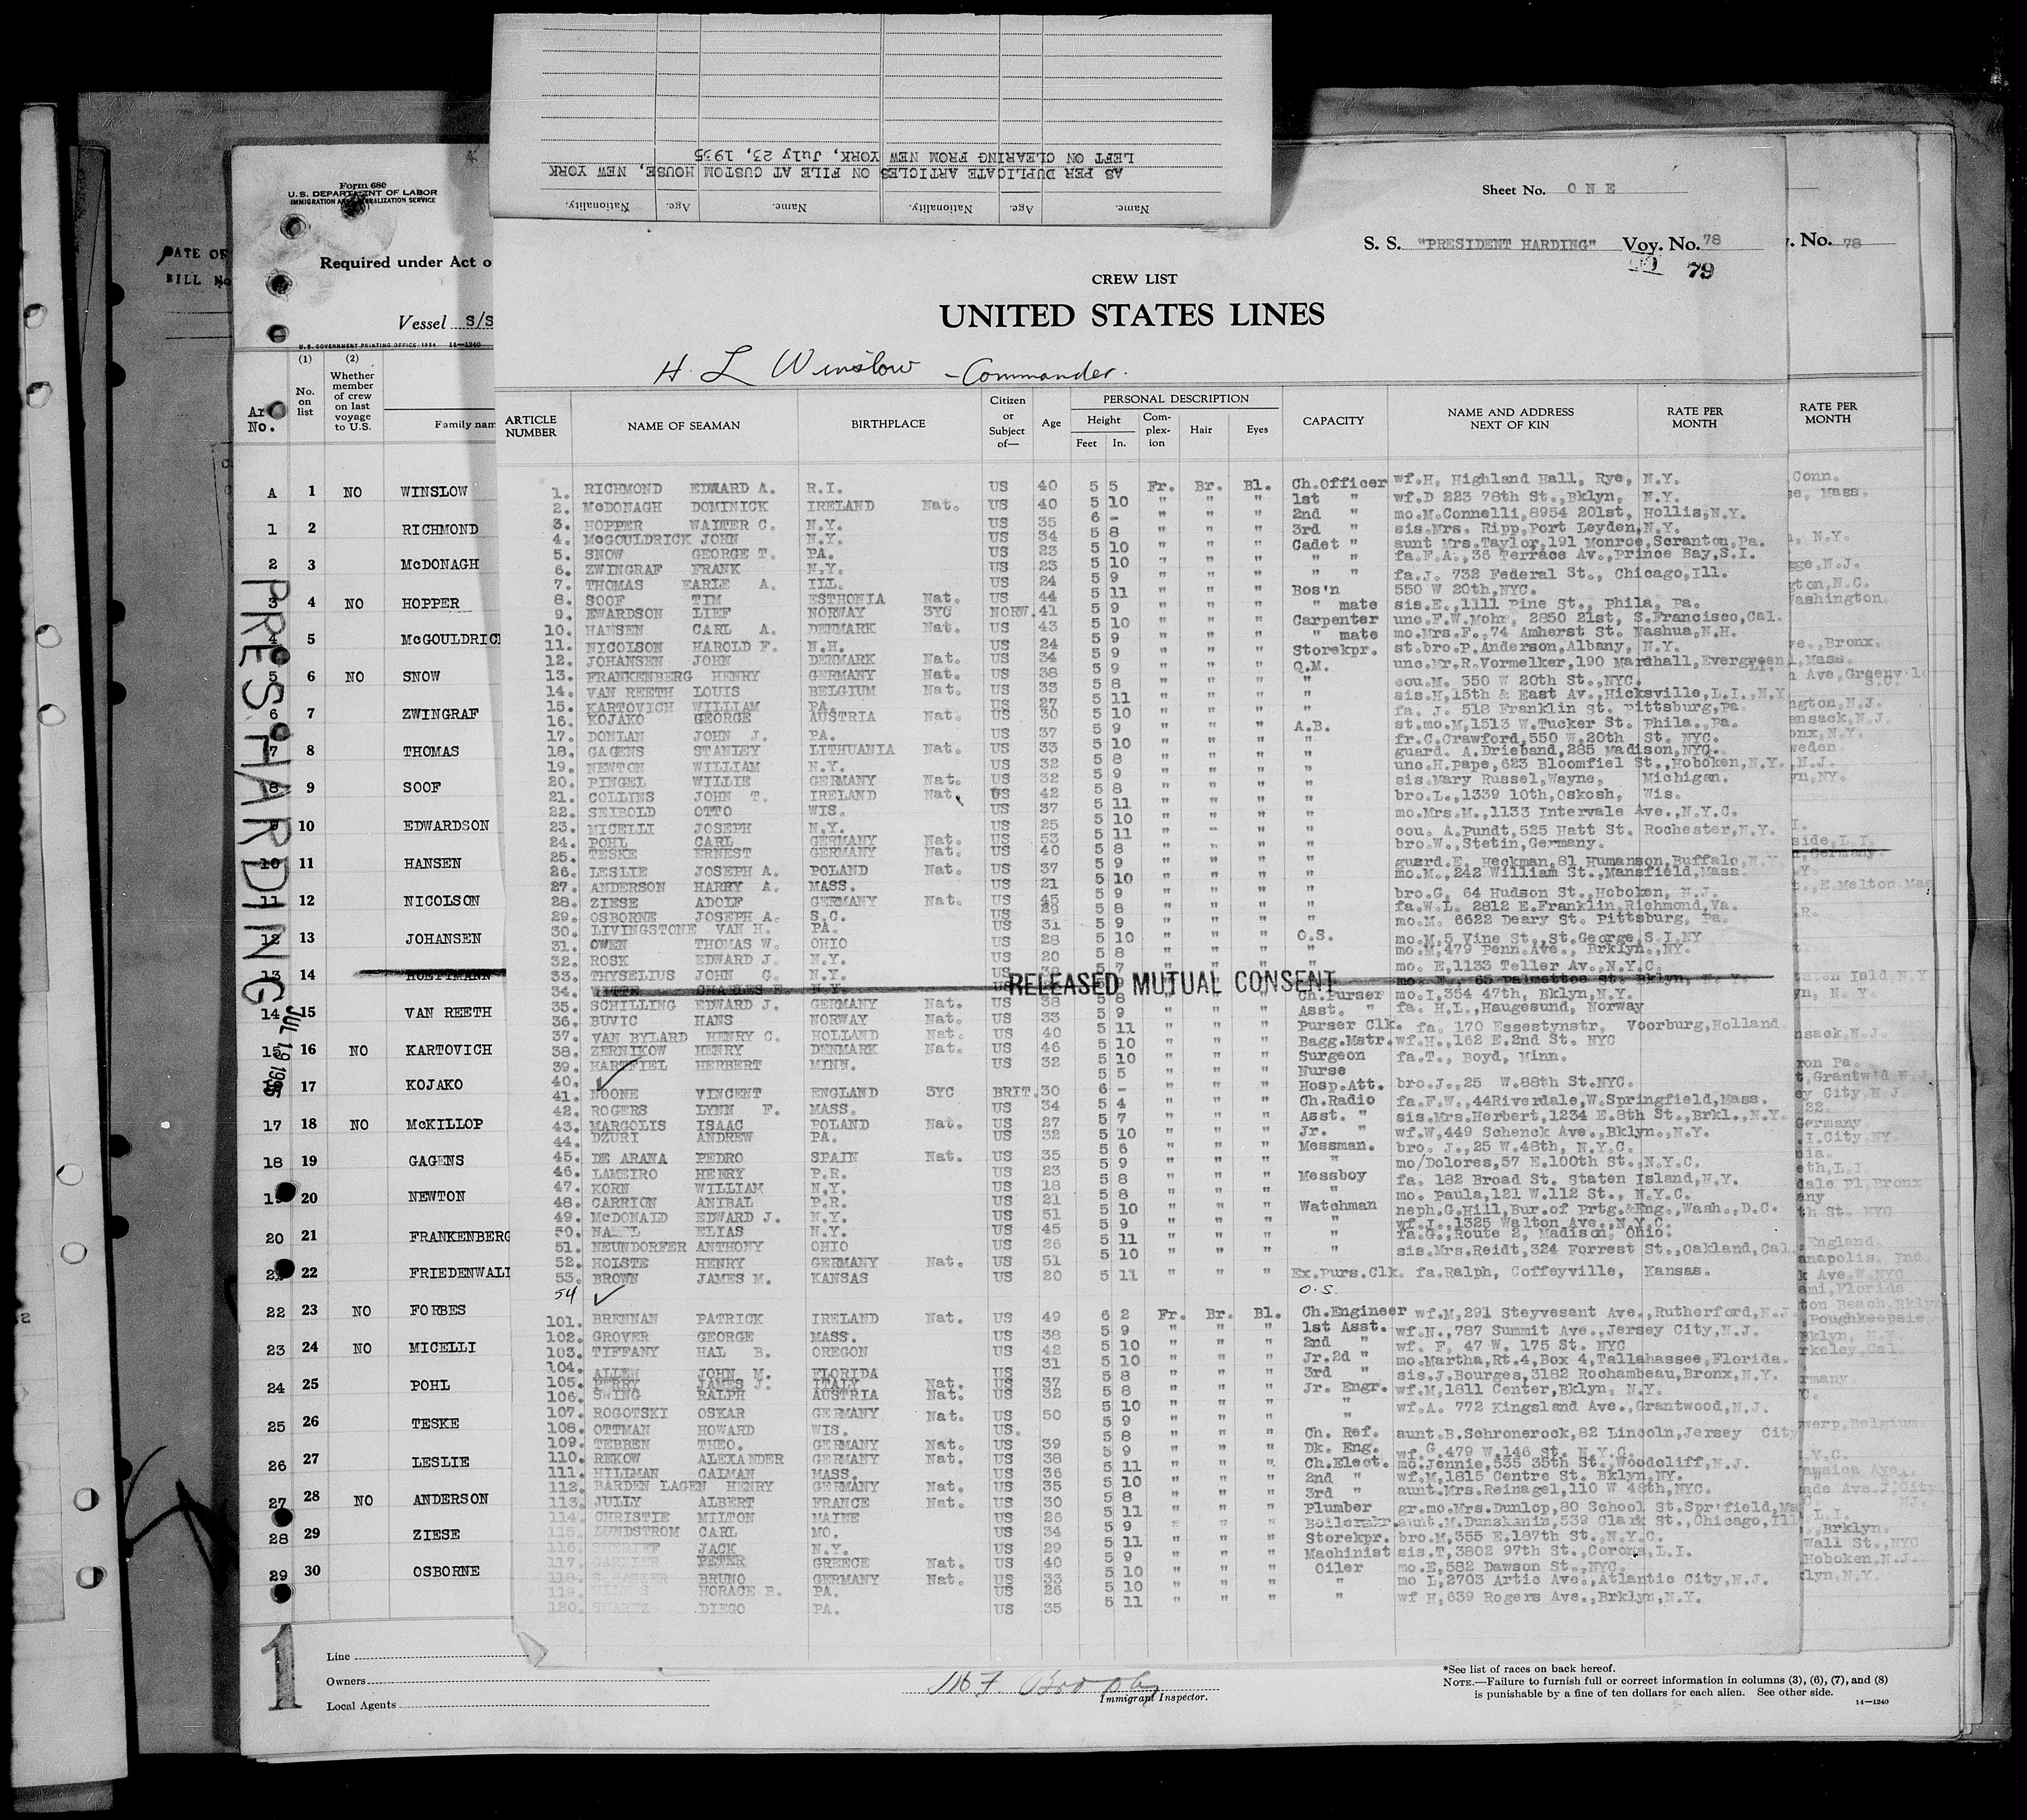 AS PER DUPLICATE ARTICLES ON FILE AT CUSTOM HOUSE, NEW YORK
LEFT ON CLEARING FROM NEW YORK, July 23, 1935
Name. Age. Nationality. Name. Age. Nationality.
Form 680
U.S. DEPARTMENT OF LABOR
IMMIGRATION AND NATURALIZATION SERVICE
Required under Act o
Vessel S/S
U.S. GOVERNMENT PRINTING OFFICE: 1934 14—1240
DATE OF
BILL No
Sheet No. ONE
S. S. "PRESIDENT HARDING" Voy. No. 78
79
. No. 78
CREW LIST
UNITED STATES LINES
H. L Winslow - Commander.
(1) No. on list
(2) Whether member of crew on last voyage to U.S.
Family nam
A 1 NO WINSLOW
1 2 RICHMOND
2 3 McDONAGH
3 4 NO HOPPER
4 5 McGOULDRICK
5 6 NO SNOW
6 7 ZWINGRAF
7 8 THOMAS
8 9 SOOF
9 10 EDWARDSON
10 11 HANSEN
11 12 NICOLSON
12 13 JOHANSEN
13 14
14 15 VAN REETH
15 16 NO KARTOVICH
17 KOJAKO
17 18 NO McKILLOP
18 19 GAGENS
19 20 NEWTON
20 21 FRANKENBERG
22 FRIEDENWALI
22 23 NO FORBES
23 24 NO MICELLI
24 25 POHL
25 26 TESKE
26 27 LESLIE
27 28 NO ANDERSON
28 29 ZIESE
29 30 OSBORNE
PRES. HARDING
JUL 19 1935
1
ARTICLE NUMBER NAME OF SEAMAN BIRTHPLACE Citizen or Subject of— Age PERSONAL DESCRIPTION Height Feet In. Com-plex-ion Hair Eyes CAPACITY NAME AND ADDRESS NEXT OF KIN RATE PER MONTH
RATE PER MONTH
1. RICHMOND EDWARD A. R.I. US 40 5 5 Fr. Br. Bl. Ch.Officer wf.H, Highland Hall, Rye, N.Y.
2. McDONAGH DOMINICK IRELAND Nat. US 40 5 10 " " " 1st " wf.D 223 78th St.,Bklyn, N.Y.
3. HOPPER WALTER C. N.Y. US 35 6 - " " " 2nd " mo.M.Connelli,8954 201st, Hollis,N.Y.
4. McGOULDRICK JOHN N.Y. US 34 5 8 " " " 3rd " sis.Mrs. Ripp,Port Leyden,N.Y.
5. SNOW GEORGE T. PA. US 23 5 10 " " " Cadet " aunt Mrs.Taylor,191 Monroe,Scranton,Pa.
6. ZWINGRAF FRANK N.Y. US 23 5 10 " " " " " fa.F.A.,36 Terrace Av.,Prince Bay,S.I.
7. THOMAS EARLE A. ILL. US 24 5 9 " " " " " fa.J. 732 Federal St., Chicago,Ill.
8. SOOF TIM ESTHONIA Nat. US 44 5 11 " " " Bos'n 550 W 20th,NYC.
9. EWARDSON LIEF NORWAY 3YC NORW. 41 5 9 " " " " mate sis.E.,1111 Pine St., Phila, Pa.
10. HANSEN CARL A. DENMARK Nat. US 43 5 10 " " " Carpenter unc.F.W.Mohr, 2850 21st, S.Francisco,Cal.
11. NICOLSON HAROLD F. N.H. US 24 5 9 " " " " mate mo.Mrs.F.,74 Amherst St. Nashua,N.H.
12. JOHANSEN JOHN DENMARK Nat. US 34 5 9 " " " Storekpr. st.bro.P.Anderson,Albany, N.Y.
13. FRANKENBERG HENRY GERMANY Nat. US 38 5 9 " " " Q.M. unc.Mr.R.Vormelker,190 Marshall,Evergreen
14. VAN REETH LOUIS BELGIUM Nat. US 33 5 8 " " " " cou.M. 550 W 20th St.,NYC.
15. KARTOVICH WILLIAM PA. US 27 5 11 " " " " sis.H,15th & East Av.,Hicksville,L.I.,N.Y.
16. KOJAKO GEORGE AUSTRIA Nat. US 30 5 10 " " " " fa. J. 518 Franklin St. Pittsburg,Pa.
17. DONLAN JOHN J. PA. US 37 5 9 " " " A.B. st.mo.M,1513 W.Tucker St. Phila.,Pa.
18. GAGENS STANLEY LITHUANIA Nat. US 33 5 10 " " " " fr.C.Crawford,550 W.20th St. NYC.
19. NEWTON WILLIAM N.Y. US 32 5 8 " " " " guard. A.Drieband,285 Madison,NYC.
20. PINGEL WILLIE GERMANY Nat. US 32 5 9 " " " " unc.H.Pape,623 Bloomfiel St.,Hoboken,N.Y.
21. COLLINS JOHN T. IRELAND Nat. US 42 5 8 " " " " sis.Mary Russel,Wayne, Michigan.
22. SEIBOLD OTTO WIS. US 37 5 11 " " " " bro.L.,1339 10th,Oskosh, Wis.
23. MICELLI JOSEPH N.Y. US 25 5 10 " " " " mo.Mrs.M.,1133 Intervale Ave.,N.Y.C.
24. POHL CARL GERMANY Nat. US 53 5 11 " " " " cou. A.Pundt,525 Hatt St. Rochester,N.Y.
25. TESKE ERNEST GERMANY Nat. US 40 5 8 " " " " bro.W.,Stetin,Germany.
26. LESLIE JOSEPH A. POLAND Nat. US 37 5 9 " " " " guard.E. Heckman,81 Humanson,Buffalo,N.Y.
27. ANDERSON HARRY A. MASS. US 21 5 10 " " " " mo.M.,242 William St.,Mansfield,Mass.
28. ZIESE ADOLF GERMANY Nat. US 45 5 9 " " " " bro.G. 64 Hudson St.,Hoboken, N.J.
29. OSBORNE JOSEPH A. S.C. US 29 5 8 " " " " fa.W.L. 2812 E.Franklin,Richmond,Va.
30. LIVINGSTONE VAN H. PA. US 31 5 9 " " " " mo.M. 6622 Deary St. Pittsburg, Pa.
31. OWEN THOMAS W. OHIO US 28 5 10 " " " O.S. mo.M,5 Vine St.,St.George,S.I.NY
32. ROSK EDWARD J. N.Y. US 20 5 8 " " " " mo.M,479 Penn.Ave., Brklyn.,NY.
33. THYSELIUS JOHN G. N.Y. US 5 7 " mo. E,1133 Teller Av.,N.Y.C.
34. WITTE CHARLES N.Y. RELEASED MUTUAL CONSENT 65 Palmettoe St. Bklyn, N.Y.
35. SCHILLING EDWARD J. GERMANY Nat. US 38 5 8 " " " Ch.Purser mo.I,354 47th, Bklyn,N.Y.
36. BUVIC HANS NORWAY Nat. US 33 5 9 " " " Asst. " fa. H.L.,Haugesund, Norway
37. VAN BYLARD HENRY C. HOLLAND Nat. US 40 5 11 " " " Purser Clk. fa. 170 Essestynstr, Voorburg,Holland
38. ZERNIKOW HENRY DENMARK Nat. US 46 5 10 " " " Bagg.Mstr. wf.H.,162 E.2nd St. NYC
39. HARTFIEL HERBERT MINN. US 32 5 10 " " " Surgeon fa.T., Boyd, Minn.
40. 5 5 " " " Nurse
41. NOONE VINCENT ENGLAND 3YC BRIT. 30 6 - " " " Hosp.Att. bro.J.,25 W.88th St.NYC.
42. ROGERS LYNN F. MASS. US 34 5 4 " " " Ch.Radio fa.F.W.,44Riverdale,W.Springfield,Mass.
43. MARGOLIS ISAAC POLAND Nat. US 27 5 7 " " " Asst. " sis.Mrs.Herbert,1234 E.8th St.,Brkl.,N.Y.
44. DZURI ANDREW PA. US 32 5 10 " " " Jr. " wf.W,449 Schenck Ave.,Bklyn.,N.Y.
45. DE ARANA PEDRO SPAIN Nat. US 35 5 6 " " " Messman. bro. J.,25 W.48th, N.Y.C.
46. LAMEIRO HENRY P.R. US 23 5 9 " " " " mo/Dolores,57 E.100th St.,N.Y.C.
47. KORN WILLIAM N.Y. US 18 5 8 " " " Messboy fa. 182 Broad St. Staten Island,N.Y.
48. CARRION ANIBAL P.R. US 21 5 8 " " " " mo. Paula,121 W.112 St., N.Y.C.
49. McDONALD EDWARD J. N.Y. US 51 5 10 " " " Watchman neph.G.Hill,Bur.of Prtg.&Eng.,Wash.,D.C.
50. ELIAS N.Y. US 45 5 9 " " " " wf.I.,1325 Walton Ave.,N.Y.C.
51. NEUNDORFER ANTHONY OHIO US 26 5 11 " " " " fa.G.,Route 2, Madison, Ohio.
52. HOLSTE HENRY GERMANY Nat. US 51 5 10 " " " " sis.Mrs.Reidt,324 Forrest St.,Oakland,Cal.
53. BROWN JAMES M. KANSAS US 20 5 11 " " " Ex.Purs.Clk. fa.Ralph, Coffeyville, Kansas.
54 O.S.
101. BRENNAN PATRICK IRELAND Nat. US 49 6 2 Fr. Br. Bl. Ch.Engineer wf.M,291 Steyvesant Ave.,Rutherford,N.J.
102. GROVER GEORGE MASS. US 38 5 9 " " " 1st Asst. wf.N.,787 Summit Ave.,Jersey City,N.J.
103. TIFFANY HAL B. OREGON US 42 5 10 " " " 2nd " wf. F, 47 W. 175 St. NYC
104. ALLEN JOHN M. FLORIDA US 31 5 10 " " " Jr.2d " mo.Martha,Rt.4,Box 4,Tallahassee,Florida.
105. PERRY JAMES J. ITALY Nat. US 37 5 8 " " " 3rd " sis.J.Bourges,3182 Rochambeau,Bronx,N.Y.
106. SWING RALPH AUSTRIA Nat. US 32 5 8 " " " Jr. Engr. wf.M,1811 Center,Bklyn, N.Y.
107. ROGOTSKI OSKAR GERMANY Nat. US 50 5 10 " " " " wf.A. 772 Kingsland Ave.,Grantwood,N.J.
108. OTTMAN HOWARD WIS. US. 5 9 " " "
109. TEBBEN THEO. GERMANY Nat. US 39 5 8 " " " Ch. Ref. aunt.B.Schronerock,82 Lincoln,Jersey City
110. REKOW ALEXANDER GERMANY Nat. US 38 5 9 " " " Dk. Eng. wf.G.479 W.146 St. N.Y.C.
111. HILLMAN CALMAN MASS. US 36 5 11 " " " Ch.Elect. mo.Jennie,535 35th St.,Woodcliff,N.J.
112. BARDEN LAGEN HENRY GERMANY Nat. US 35 5 10 " " " 2nd " wf.M,1815 Centre St. Bklyn,NY.
113. JULLY ALBERT FRANCE Nat. US 30 5 8 " " " 3rd " aunt.Mrs.Reinagel,110 W 48th,NYC.
114. CHRISTIE MILTON MAINE US 26 5 11 " " " Plumber gr.mo.Mrs.Dunlop,80 School St.Spr'field,Ma
115. LUNDSTROM CARL MO. US 34 5 9 " " " Boilermkr. aunt.M.Dunskanin,539 Clark St.,Chicago,Ill
116. JACK N.Y. US 29 5 11 " " " Storekpr. bro.M,355 E.187th St.,N.Y.C.
117. PETER GREECE Nat. US 40 5 9 " " " Machinist sis.T,3802 97th St.,Corona,L.I.
118. BRUNO GERMANY Nat. US 33 5 10 " " " Oiler mo.E,582 Dawson St.,NYC.
119. HORACE B. PA. US 26 5 10 " " " " mo L,2703 Artic Ave.,Atlantic City,N.J.
120. SUAREZ DIEGO PA. US 35 5 11 " " " " wf H,639 Rogers Ave.,Brklyn,N.Y.
Line
Owners
Local Agents
Immigrant Inspector.
*See list of races on back hereof.
NOTE.—Failure to furnish full or correct information in columns (3), (6), (7), and (8)
is punishable by a fine of ten dollars for each alien. See other side.
14—1240